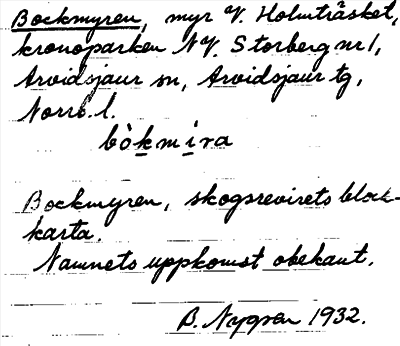 Bockmyren, myr V. Holmträsket,
kronoparken NV. Storberg nr 1,
Arvidsjaur sn, Arvidsjaur tg,
Norrb. l.
bòkmira
Bockmyren, skogsrevirets block-
karta.
Namnets uppkomst obekant.
B. Nygren 1932.